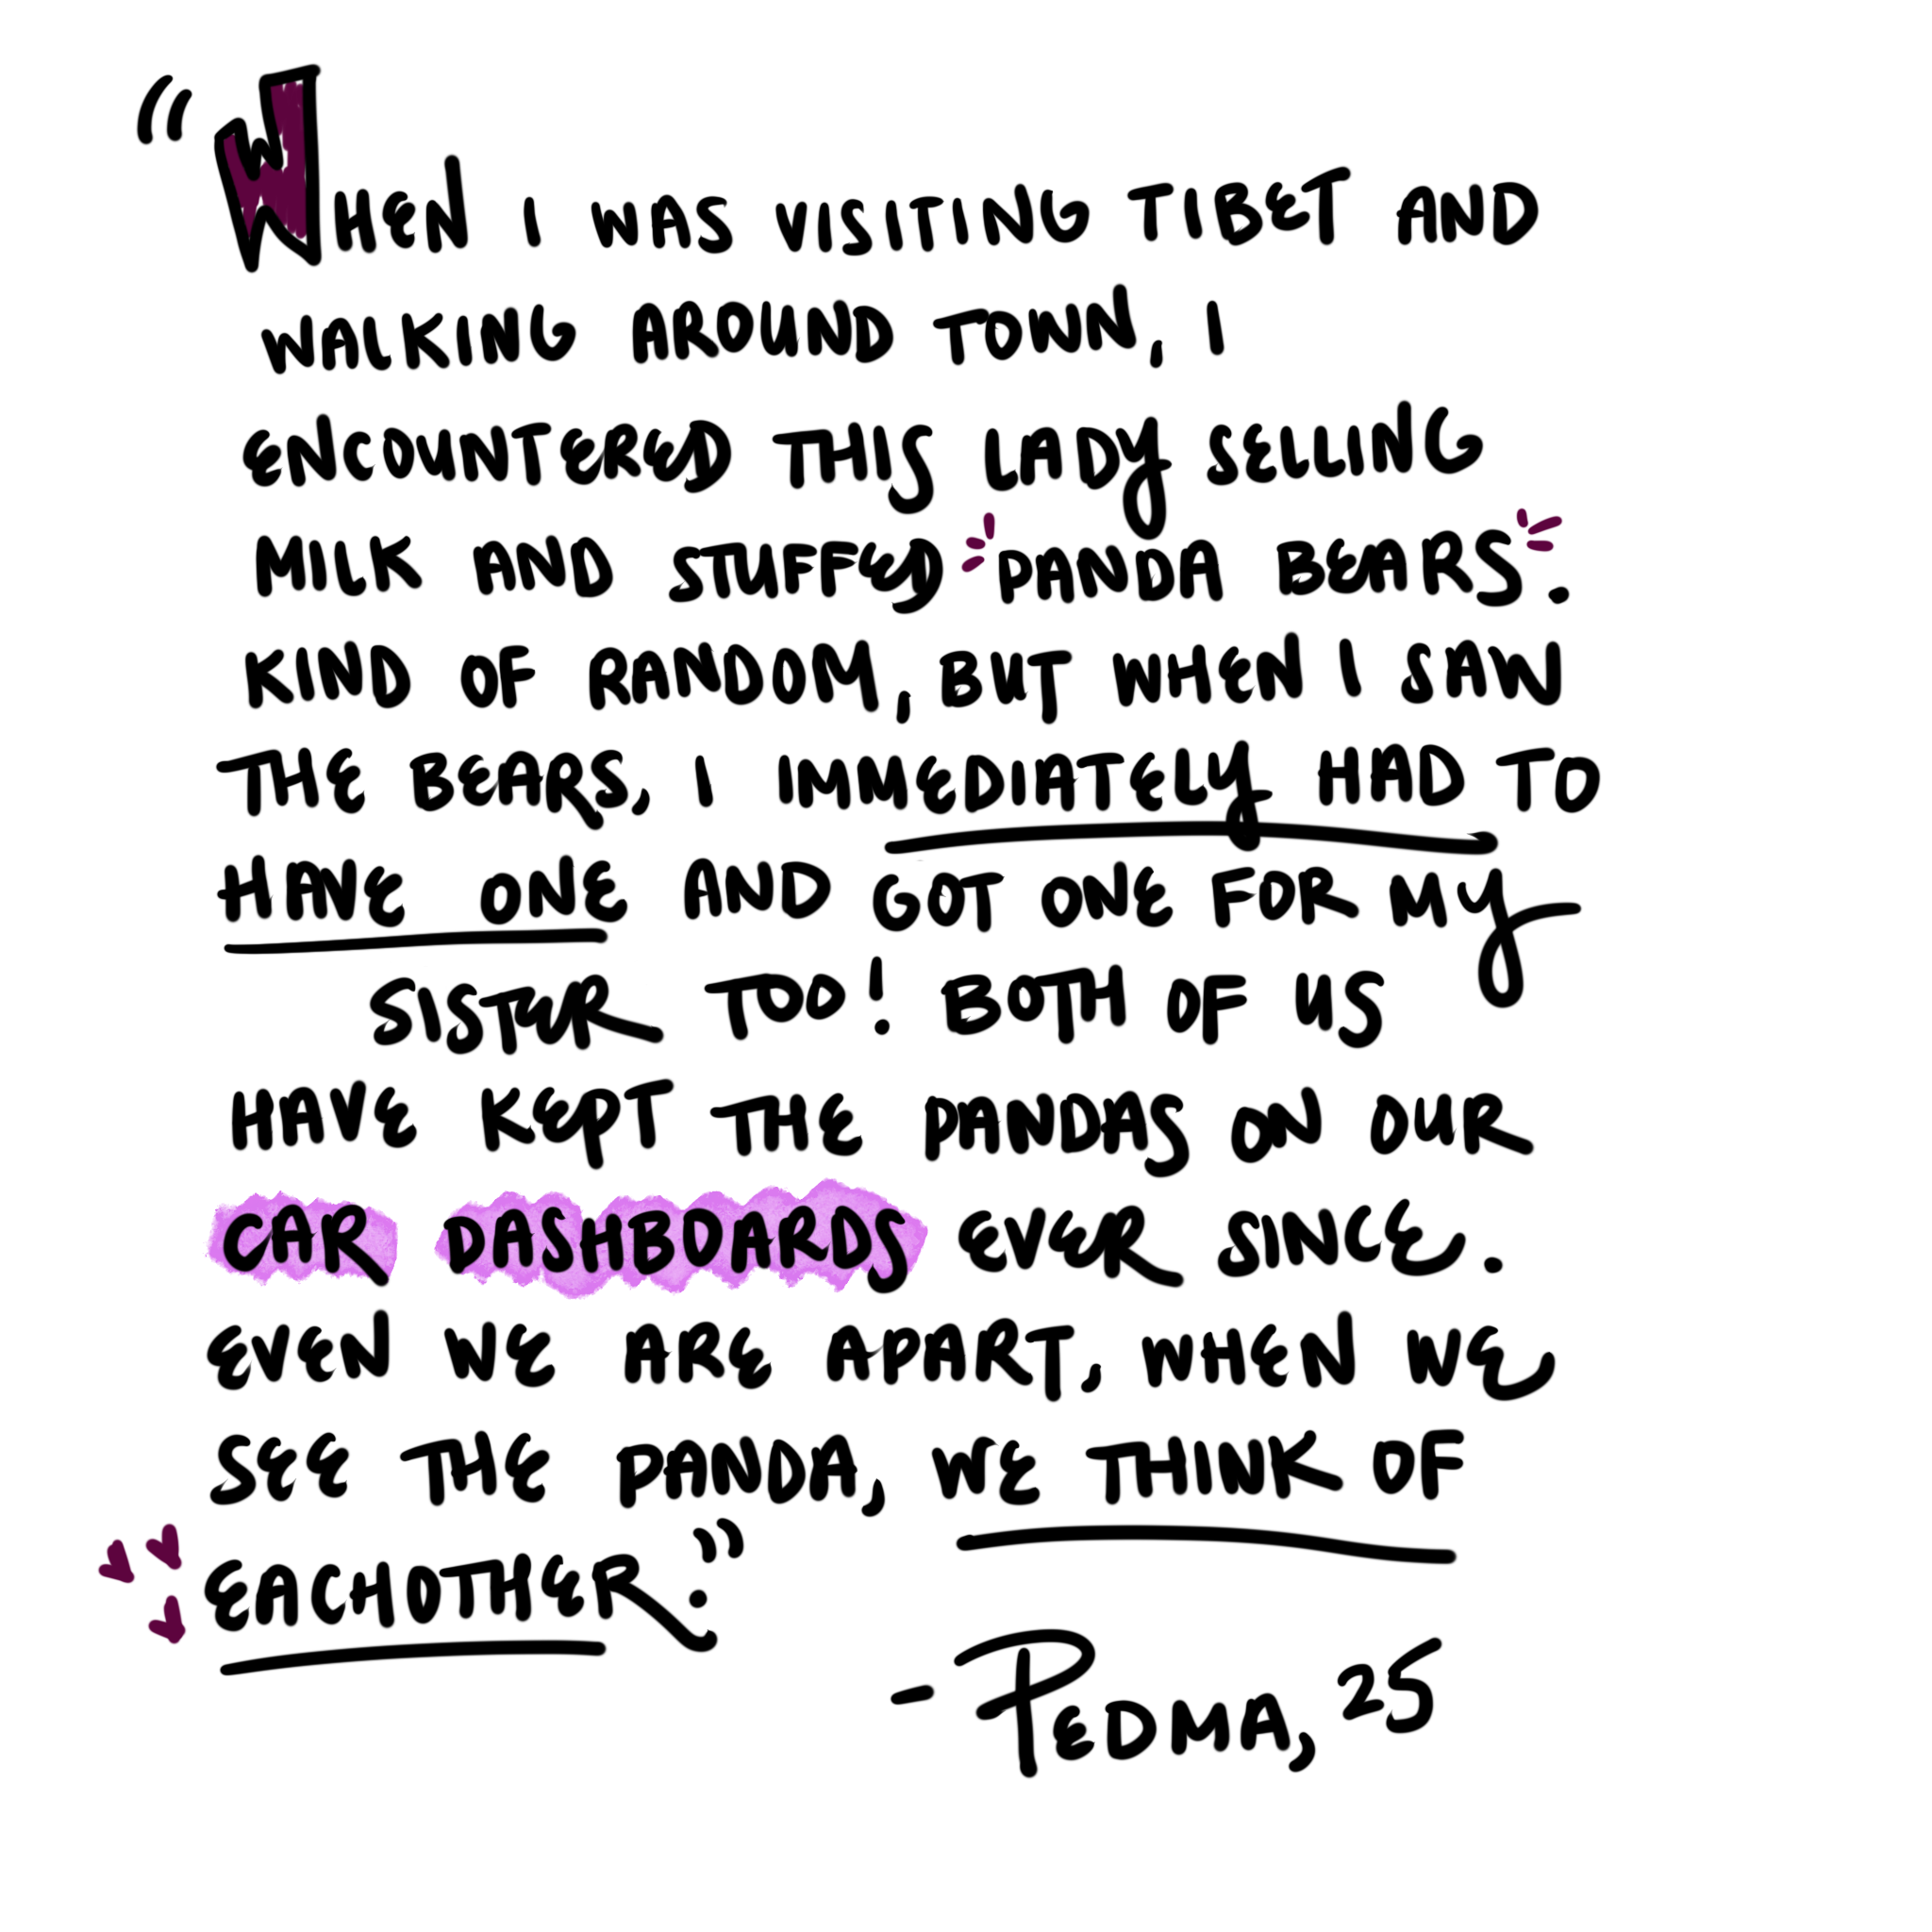 “WHEN I WAS VISITING TIBET AND
WALKING AROUND TOWN, I
ENCOUNTERED THIS LADY SELLING
MILK AND STUFFED PANDA BEARS.
KIND OF RANDOM, BUT WHEN I SAW
THE BEARS, I IMMEDIATELY HAD TO
HAVE ONE AND GOT ONE FOR MY
SISTER TOO! BOTH OF US
HAVE KEPT THE PANDAS ON OUR
CAR DASHBOARDS EVER SINCE.
EVEN WE ARE APART, WHEN WE
SEE THE PANDA, WE THINK OF
EACHOTHER.”
- PEDMA, 25